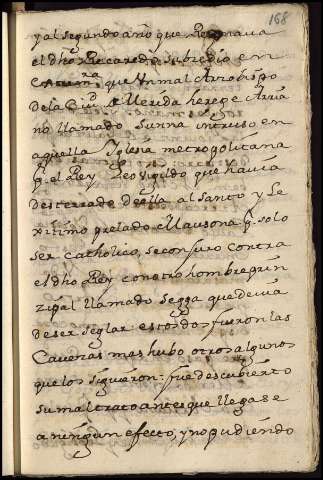 168
y al segundo año que Reynava
el dho Reccaredo subcedio en
que Un mal Arzobispo
De la Ciud de Merida herege Arria
no llamado Sunna intruso en
aquella Iglesia metropolitana
q. el Rey Leovigildo que havia
desterrado de ella al Santo y Le
xitimo prelado Mausona q. solo
ser Catholico, se conjuro contra
el dho Rey con otro hombre prin
zipal llamado Segga que devia
de ser seglar: estos dos fueron las
Cavezas mas hubo otros algunos
que los siguieron: fue descubierto
su mal trato antes que llegase
a ningun efecto, y no pudiendo